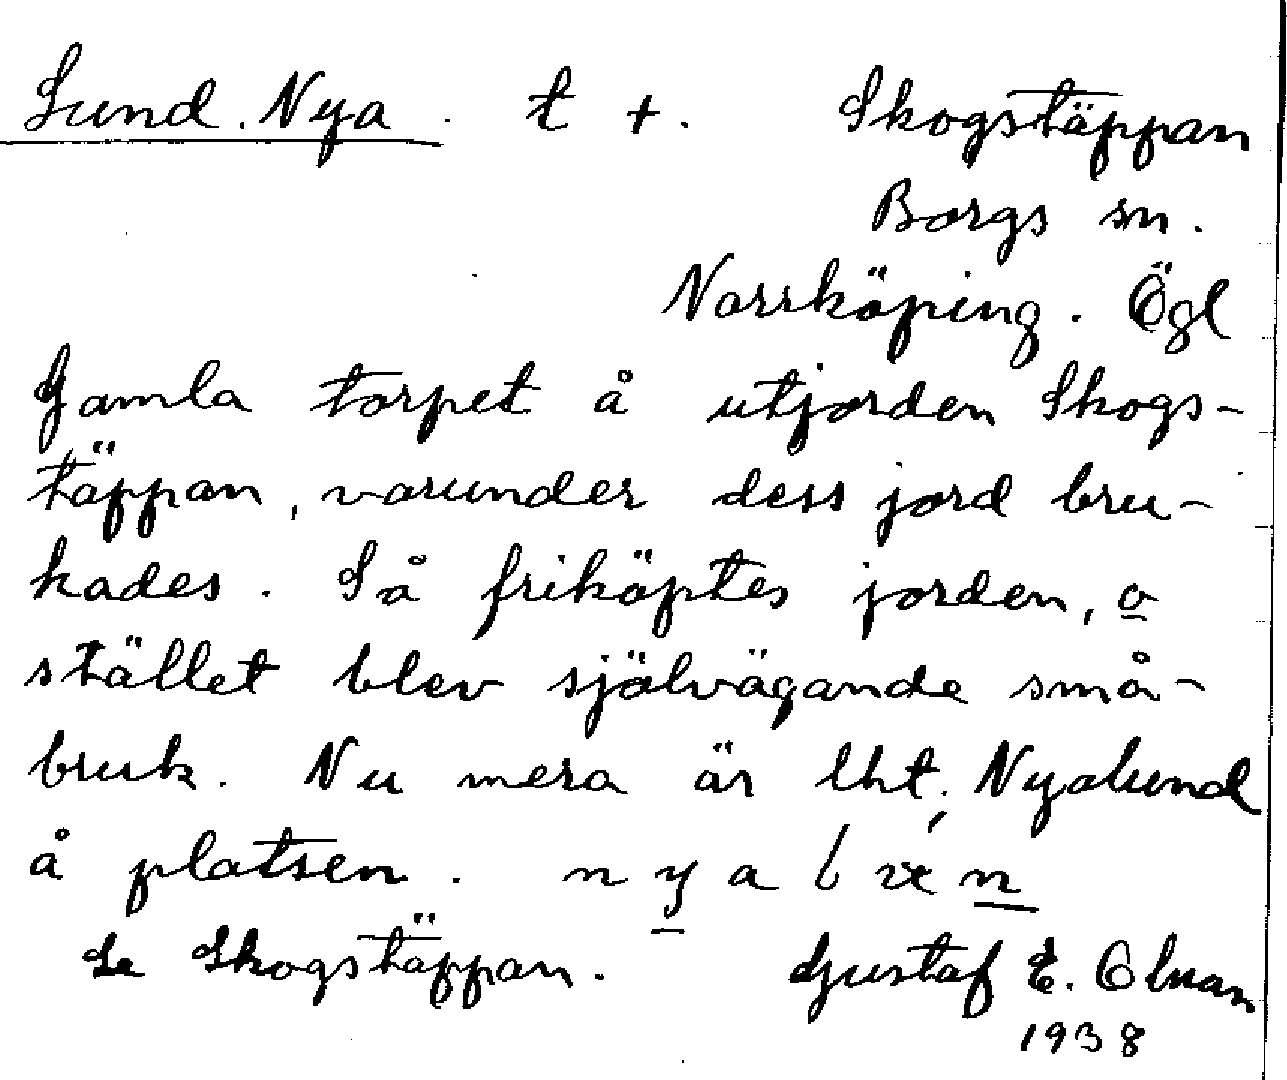 Lund. Nya. t +. Skogstäppan
Borgs sn.
Norrköping. Ögl
Gamla torpet å utjorden Skogs-
täppan, varunder dess jord bru-
kades. Så friköptes jorden, o
stället blev självägande små-
bruk. Nu mera är lht. Nyalund
å platsen. n y a
Se Skogstäppan. Gustaf E. Olsson
1938